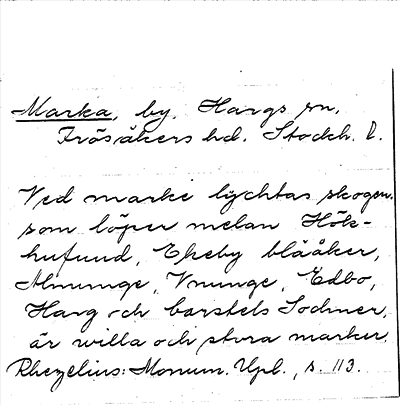 Marka, by, Hargs sn,
Frösåkers hd. Stockh. l.
Ved marke lychtas skogen
som löper melan Hök-
hufuud, Ekeby blååker,
Almunge, Vnunge, Edbo,
Harg och barstels Sochner,
är willa och stora marker.
Rhezelius: Monum. Upl., s. 113.